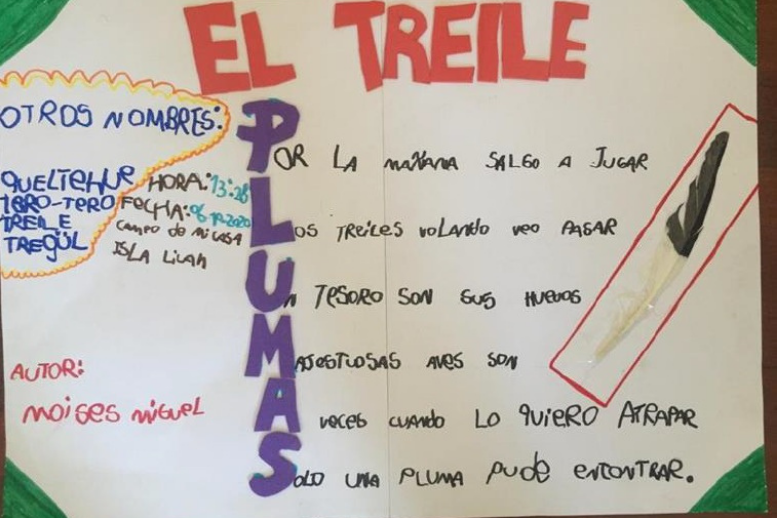 EL TREILE
OTROS NOMBRES:
QUELTEHUE
TERO-TERO
TREILE
TREGÜL
HORA: 13:28
FECHA: 06 10-2020
CAMPO DE MI CASA
ISLA LICAN
AUTOR:
MOISES MIGUEL
POR LA MAÑANA SALGO A JUGAR
LOS TREILES VOLANDO VEO PASAR
UN TESORO SON SUS HUEVOS
MAJESTUOSAS AVES SON
A VECES CUANDO LO QUIERO ATRAPAR
SOLO UNA PLUMA PUDE ENCONTRAR.